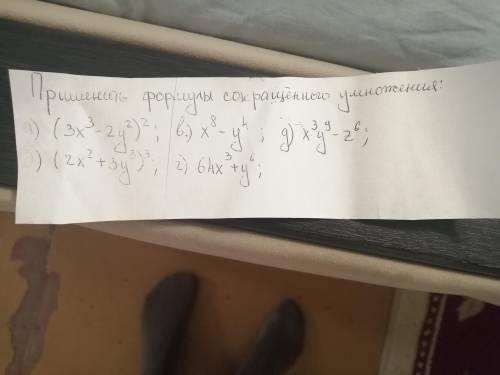 Применить формулы сокращённого умножения:
а) (3x³-2y²)²; в) x⁸-y⁴; д) x³y⁹-z⁶;
б) (2x²+3y³)³; г) 64x³+y⁶;